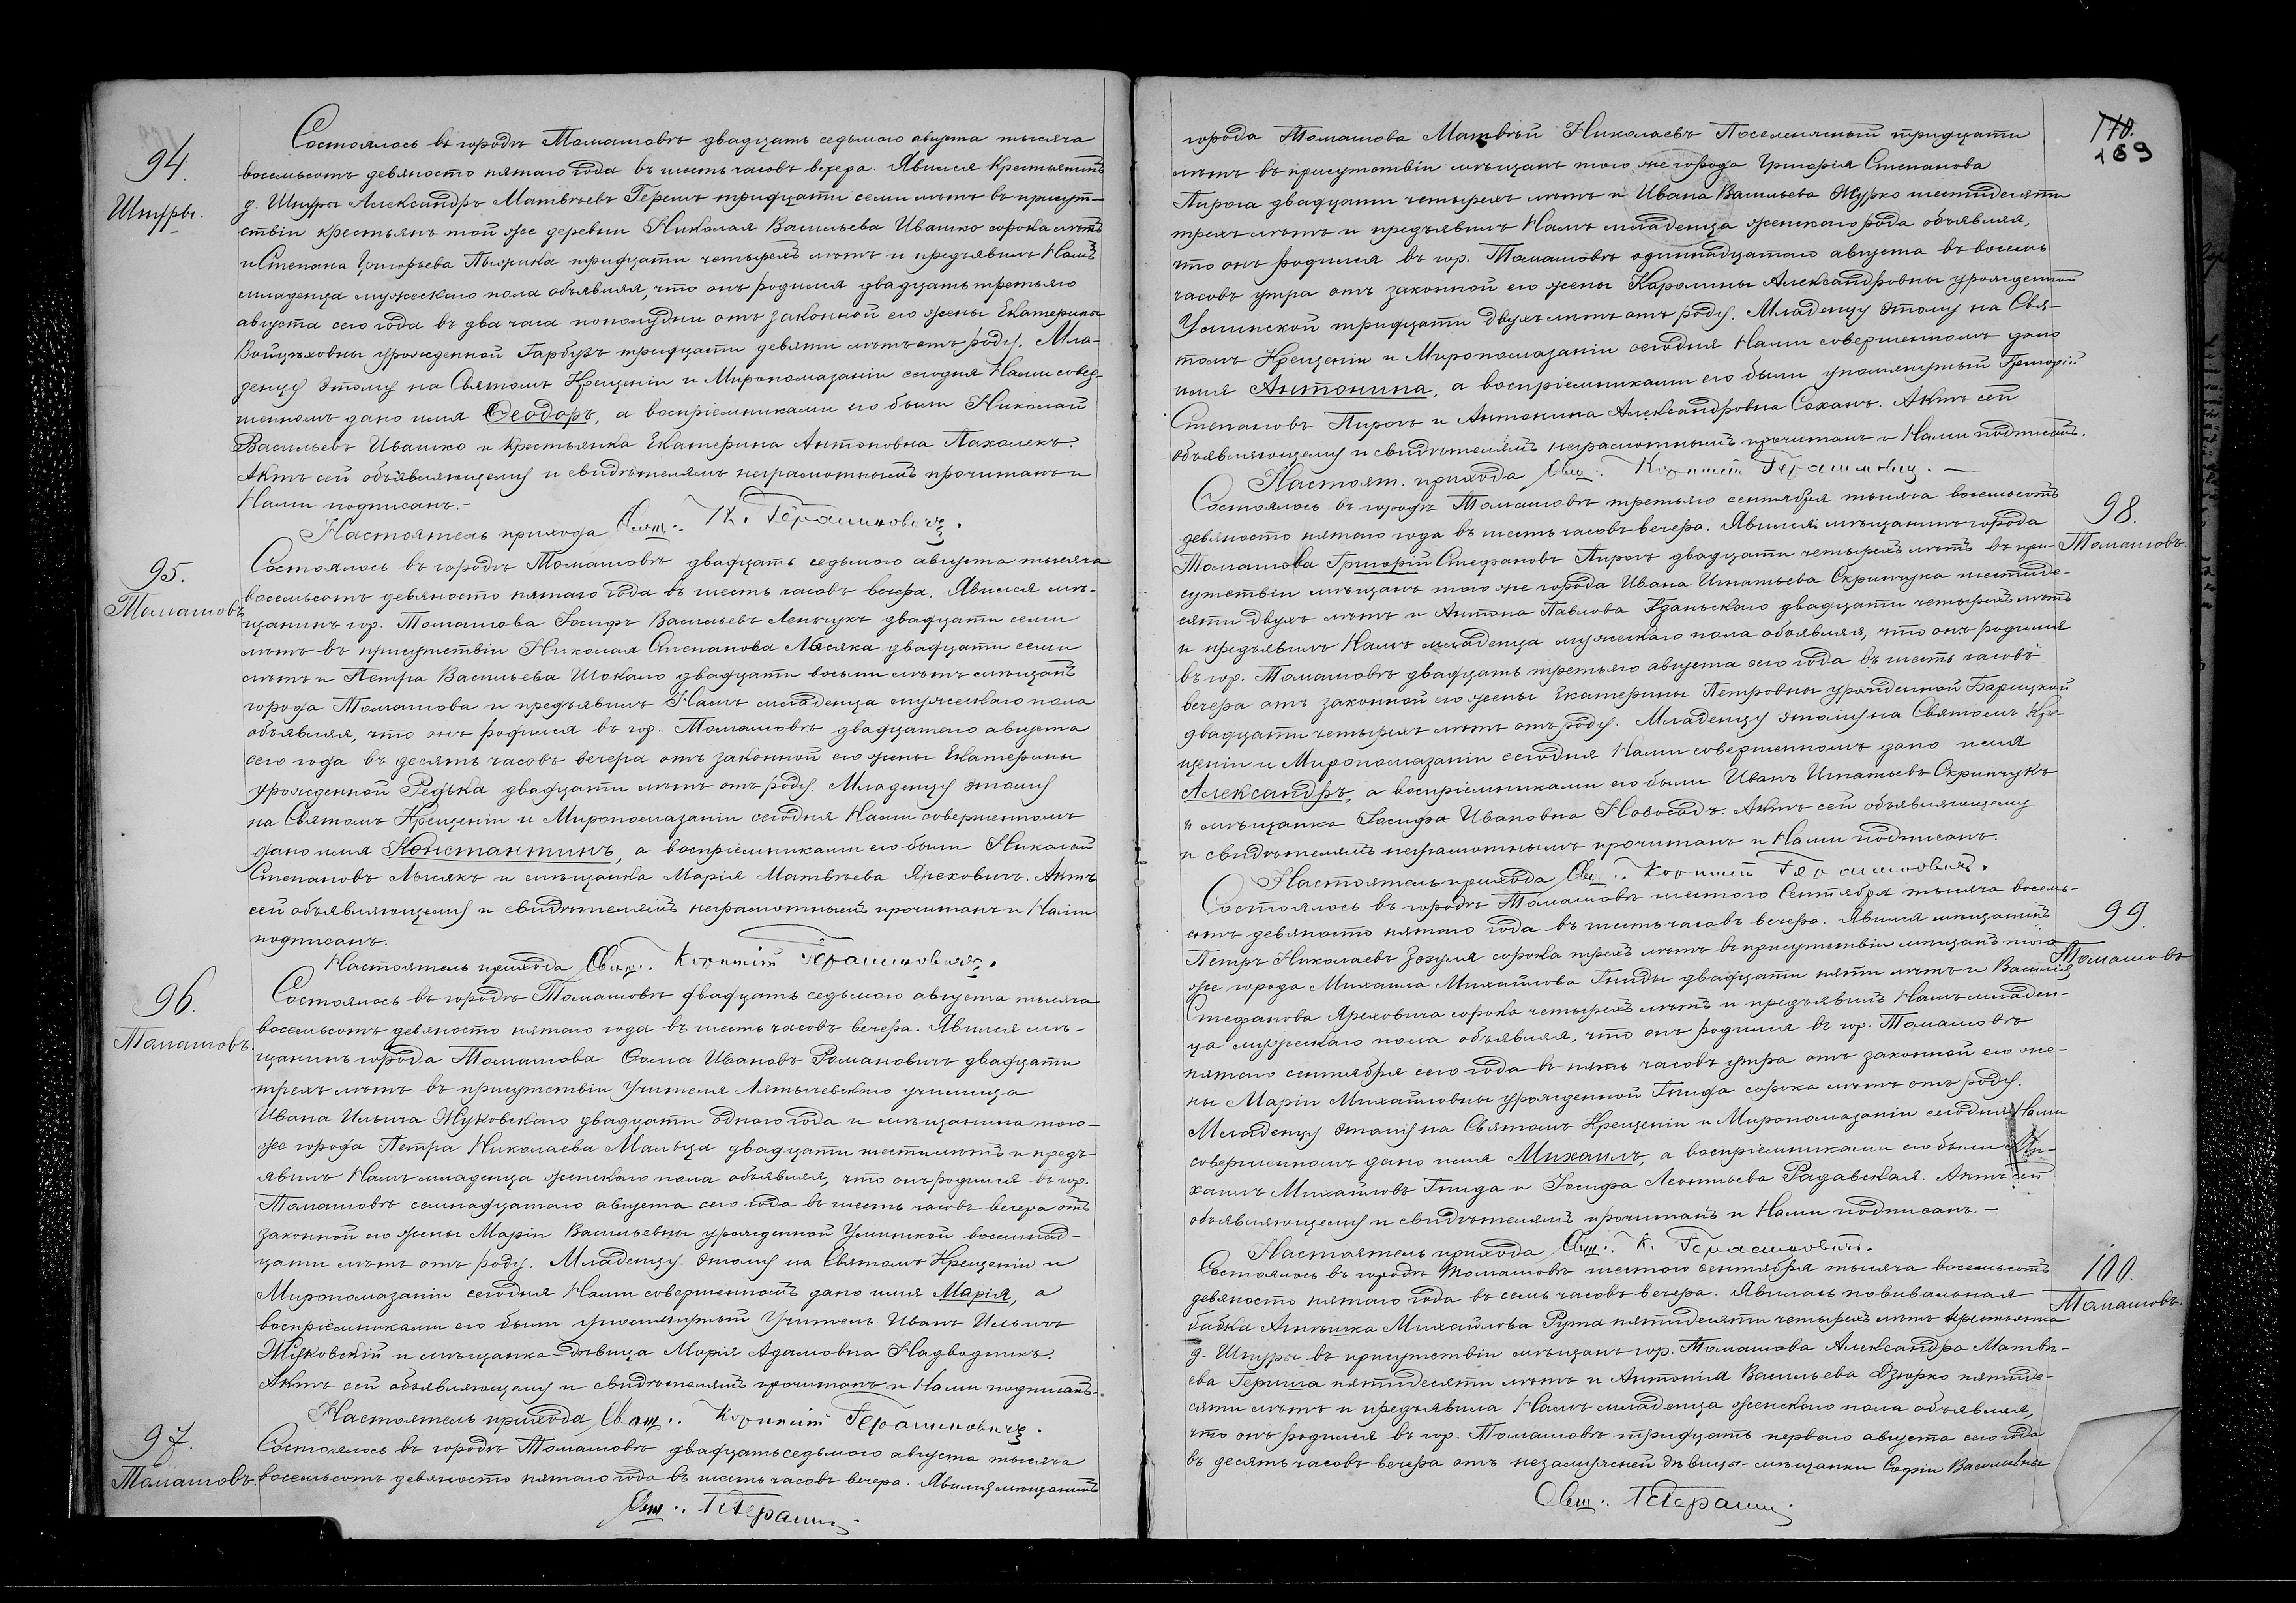 94.
Шпуры.
Состоялось въ городѣ Томашовѣ двадцать седьмаго августа тысяча
восемьсотъ девяносто пятаго года въ шесть часовъ вечера. Явился крестьянинъ
д. Шпуры Александръ Матвѣевъ Герешъ тридцати семи лѣтъ въ присут-
ствіи крестьянъ той же деревни Николая Васильева Ивашко сорока лѣтъ
и Степана Григорьева тридцати четырехъ лѣтъ и предъявилъ Намъ
младенца мужескаго пола объявляя, что онъ родился двадцать третьяго
августа сего года въ два часа пополудни отъ законной его жены Екатерины
Войцѣховны урожденной Гарбузъ тридцати девяти лѣтъ отъ роду. Мла-
денцу этому на Святомъ Крещеніи и Миропомазаніи сегодня Нами совер-
шенномъ дано имя Ѳеодоръ, а воспріемниками его были Николай
Васильевъ Ивашко и крестьянка Екатерина Антоновна Пахолекъ.
Актъ сей объявляющему и свидѣтелямъ неграмотнымъ прочитанъ и
Нами подписанъ.-
Настоятель прихода Свящ. К. Герасимовичъ.
95.
Томашовъ
Состоялось въ городѣ Томашовѣ двадцать седьмаго августа тысяча
восемьсотъ девяносто пятаго года въ шесть часовъ вечера. Явился мѣ-
щанинъ гор. Томашова Іосифъ Васильевъ Леньчукъ двадцати семи
лѣтъ въ присутствіи Николая Степанова Лысяка двадцати семи
лѣтъ и Петра Васильева Шокало двадцати восьми лѣтъ мѣщанъ
города Томашова и предъявилъ Намъ младенца мужескаго пола
объявляя, что онъ родился въ гор. Томашовѣ двадцатаго августа
сего года въ десять часовъ вечера отъ законной его жены Екатерины
урожденной Редька двадцати лѣтъ отъ роду. Младенцу этому
на Святомъ Крещеніи и Миропомазаніи сегодня Нами совершенномъ
дано имя Константинъ, а воспріемниками его были Николай
Степановъ Лысякъ и мѣщанка Марія Матвѣева Яреховичъ. Актъ
сей объявляющему и свидѣтелямъ неграмотнымъ прочитанъ и Нами
подписанъ.
Настоятель прихода Свящ. Корнилій Герасимовичъ.
96.
Томашовъ.
Состоялось въ городѣ Томашовѣ двадцать седьмаго августа тысяча
восемьсотъ девяносто пятаго года въ шесть часовъ вечера. Явился мѣ-
щанинъ города Томашова Ѳома Ивановъ Романовичъ двадцати
трехъ лѣтъ въ присутствіи Учителя училища
Ивана Ильича Жуковскаго двадцати одного года и мѣщанина того-
же города Петра Николаева Мальца двадцати шести лѣтъ и предъ-
явилъ Намъ младенца женскаго пола объявляя, что онъ родился въ гор.
Томашовѣ семнадцатаго августа сего года въ шесть часовъ вечера отъ
законной его жены Маріи Васильевны урожденной Улинской восемнад-
цати лѣтъ отъ роду. Младенцу этому на Святомъ Крещеніи и
Миропомазаніи сегодня Нами совершенномъ дано имя Марія, а
воспріемниками его были упомянутый Учитель Иванъ Ильичъ
Жуковскій и мѣщанка-дѣвица Марія Адамовна Надводникъ.
Актъ сей объявляющему и свидѣтелямъ прочитанъ и Нами подписанъ.-
Настоятель прихода Свящ. Корнилій Герасимовичъ.
97.
Томашовъ.
Состоялось въ городѣ Томашовѣ двадцать седьмаго августа тысяча
восемьсотъ девяносто пятаго года въ шесть часовъ вечера. Явился мѣщанинъ
Свящ. КГерасим
170.
169
города Томашова Матвѣй Николаевъ тридцати
лѣтъ въ присутствіи мѣщанъ того же города Григорія Степанова
Пирога двадцати четырехъ лѣтъ и Ивана Васильева Журко шестидесяти
трехъ лѣтъ и предъявилъ Намъ младенца женскаго рода объявляя,
что онъ родился въ гор. Томашовѣ одиннадцатаго августа въ восемь
часовъ утра отъ законной его жены Каролины Александровны урожденной
Улинской тридцати двухъ лѣтъ отъ роду. Младенцу этому на Свя-
томъ Крещеніи и Миропомазаніи сегодня Нами совершенномъ дано
имя Антонина, а воспріемниками его были упомянутый Григорій
Степановъ Пирогъ и Антонина Александровна Соханъ. Актъ сей
объявляющему и свидѣтелямъ неграмотнымъ прочитанъ и Нами подписанъ.
Настоят. прихода Свящ. Корнилій Герасимовичъ. —
98.
Томашовъ.
Состоялось въ городѣ Томашовѣ третьяго сентября тысяча восемьсотъ
девяносто пятаго года въ шесть часовъ вечера. Явился мѣщанинъ города
Томашова Григорій Стефановъ Пирогъ двадцати четырехъ лѣтъ въ при-
сутствіи мѣщанъ того же города Ивана Игнатьева Скринчука шестиде-
сяти двухъ лѣтъ и Антона Павлова Гданьскаго двадцати четырехъ лѣтъ
и предъявилъ Намъ младенца мужескаго пола объявляя, что онъ родился
въ гор. Томашовѣ двадцать третьяго августа сего года въ шесть часовъ
вечера отъ законной его жены Екатерины Петровны урожденной Барицкой
двадцати четырехъ лѣтъ отъ роду. Младенцу этому на Святомъ Кре-
щеніи и Миропомазаніи сегодня Нами совершенномъ дано имя
Александръ, а воспріемниками его были Иванъ Игнатьевъ Скринчукъ
и мѣщанка Іосифа Ивановна Новосадъ. Актъ сей объявляющему
и свидѣтелямъ неграмотнымъ прочитанъ и Нами подписанъ.
Настоятель прихода Свящ. Корнилій Герасимовичъ.
99.
Томашовъ
Состоялось въ городѣ Томашовѣ шестого Сентября тысяча восемь-
сотъ девяносто пятаго года въ шесть часовъ вечера. Явился мѣщанинъ
Петръ Николаевъ Зозуля сорока трехъ лѣтъ въ присутствіи мѣщанъ того
же города Михаила Михайлова Гниды двадцати пяти лѣтъ и Василія
Стефанова Яреховича сорока четырехъ лѣтъ и предъявилъ Намъ младен-
ца мужескаго пола объявляя, что онъ родился въ гор. Томашовѣ
пятаго сентября сего года въ пять часовъ утра отъ законной его же-
ны Маріи Михайловны урожденной Гнида сорока лѣтъ отъ роду.
Младенцу этому на Святомъ Крещеніи и Миропомазаніи сегодня Нами
совершенномъ дано имя Михаилъ, а воспріемниками его были Ми-
хаилъ Михайловъ Гнида и Іосифа Леонтьева Радавская. Актъ сей
объявляющему и свидѣтелямъ прочитанъ и Нами подписанъ. —
Настоятель прихода Свящ. К. Герасимовичъ.
100.
Томашовъ.
Состоялось въ городѣ Томашовѣ шестого сентября тысяча восемьсотъ
девяносто пятаго года въ семь часовъ вечера. Явилась повивальная
бабка Михайлова Рута пятидесяти четырехъ лѣтъ крестьянка
д. Шпуры въ присутствіи мѣщанъ гор. Томашова Александра Матвѣ-
ева Гериша пятидесяти лѣтъ и Антонія Васильева Дзюрко пятиде-
сяти лѣтъ и предъявила Намъ младенца женскаго пола объявляя,
что онъ родился въ гор. Томашовѣ тридцать перваго августа сего года
въ десять часовъ вечера отъ незамужней дѣвицы-мѣщанки Софіи Васильевны
Свящ. КГерасим